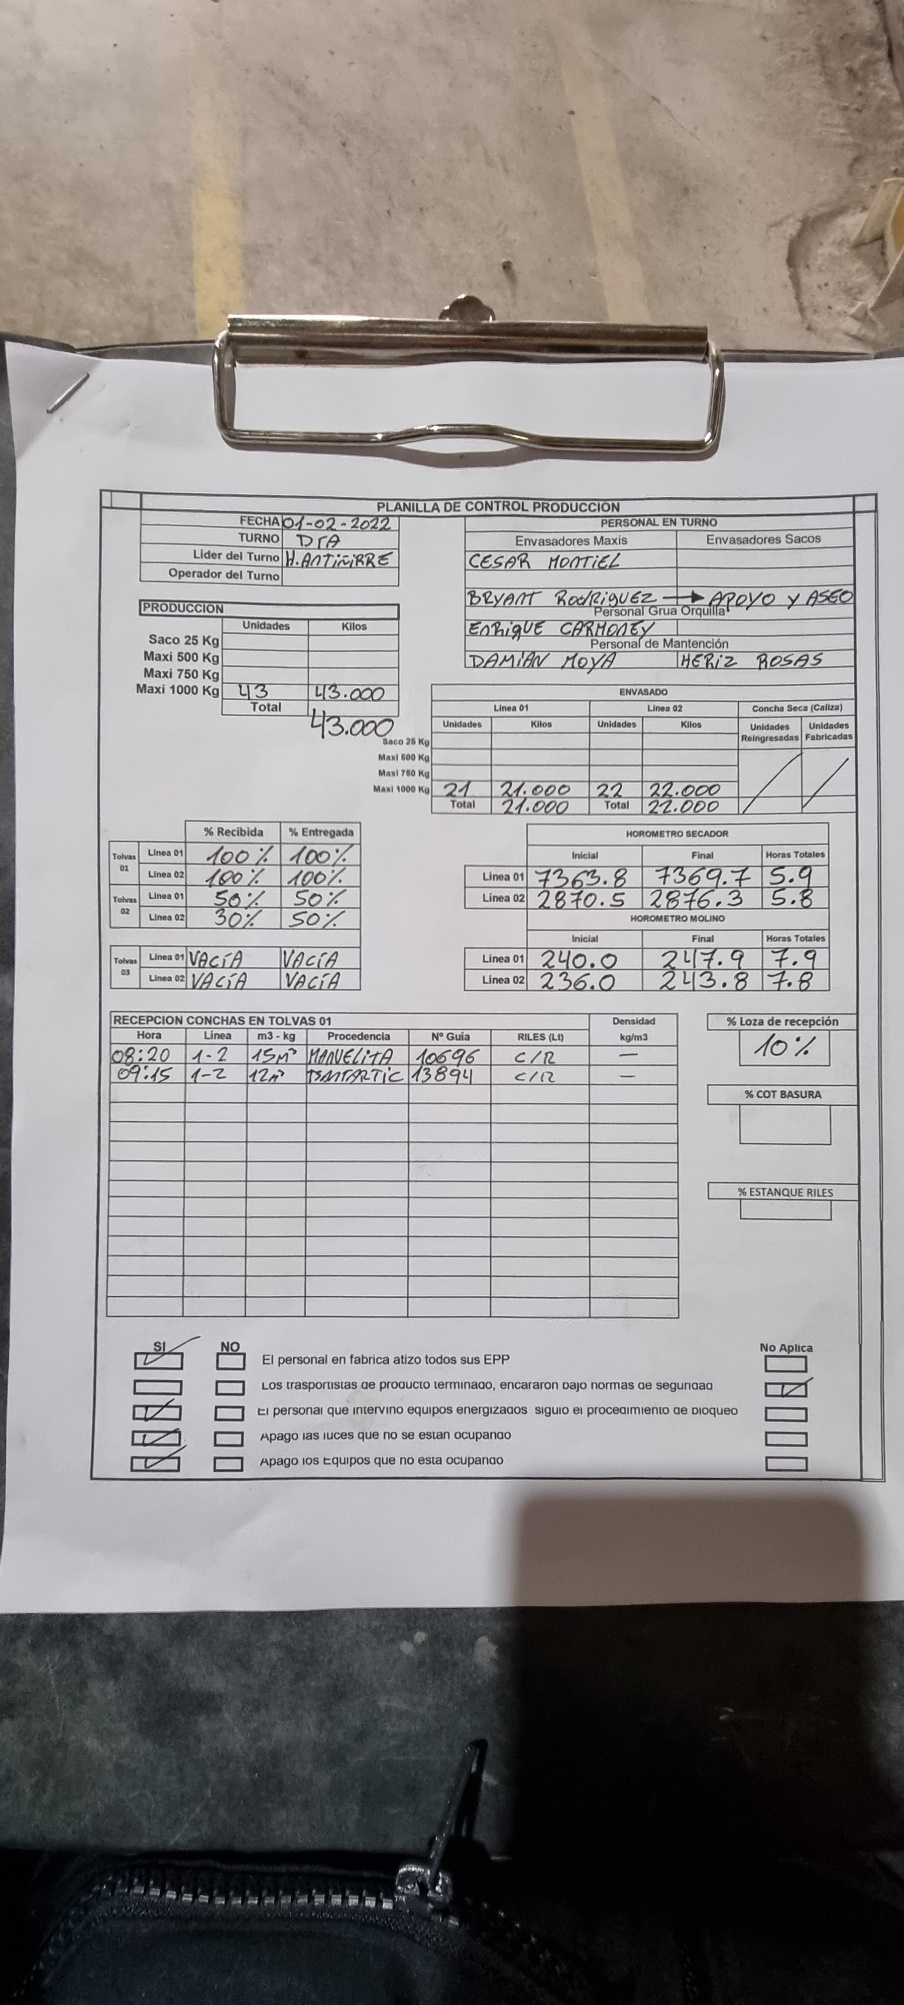 PLANILLA DE CONTROL PRODUCCIÓN
FECHA 01-02-2022
TURNO DIA
Lider del Turno H. ANTIÑIRRE
Operador del Turno
PERSONAL EN TURNO
Envasadores Maxis Envasadores Sacos
CESAR MONTIEL
BRYANT RODRIGUEZ → APOYO Y ASEO
Personal Grua Orquilla
ENRIQUE CARMONEY
Personal de Mantención
DAMIAN MOYA HERIZ ROSAS
PRODUCCIÓN
Unidades Kilos
Saco 25 Kg
Maxi 500 Kg
Maxi 750 Kg
Maxi 1000 Kg 43 43.000
Total 43.000
ENVASADO
Linea 01 Linea 02 Concha Seca (Caliza)
Unidades Kilos Unidades Kilos Unidades Reingresadas Unidades Fabricadas
Saco 25 Kg
Maxi 500 Kg
Maxi 750 Kg
Maxi 1000 Kg 21 21.000 22 22.000
Total 21.000 Total 22.000
% Recibida % Entregada
Tolvas 01 Linea 01 100% 100%
Linea 02 100% 100%
Tolvas 02 Linea 01 50% 50%
Linea 02 30% 50%
Tolvas 03 Linea 01 VACÍA VACÍA
Linea 02 VACÍA VACÍA
HOROMETRO SECADOR
Inicial Final Horas Totales
Linea 01 7363.8 7369.7 5.9
Linea 02 2870.5 2876.3 5.8
HOROMETRO MOLINO
Inicial Final Horas Totales
Linea 01 240.0 247.9 7.9
Linea 02 236.0 243.8 7.8
RECEPCION CONCHAS EN TOLVAS 01
Hora Linea m3 - kg Procedencia Nº Guia RILES (Lt) Densidad kg/m3
08:20 1-2 15m³ MANUELITA 10696 C/R —
09:15 1-2 12m³ 13894 C/R —
% Loza de recepción
10%
% COT BASURA
% ESTANQUE RILES
SI NO No Aplica
El personal en fabrica atizo todos sus EPP
Los trasportistas de producto terminado, encararon bajo normas de seguridad
El personal que intervino equipos energizados siguio el procedimiento de bloqueo
Apago las luces que no se estan ocupando
Apago los Equipos que no esta ocupando